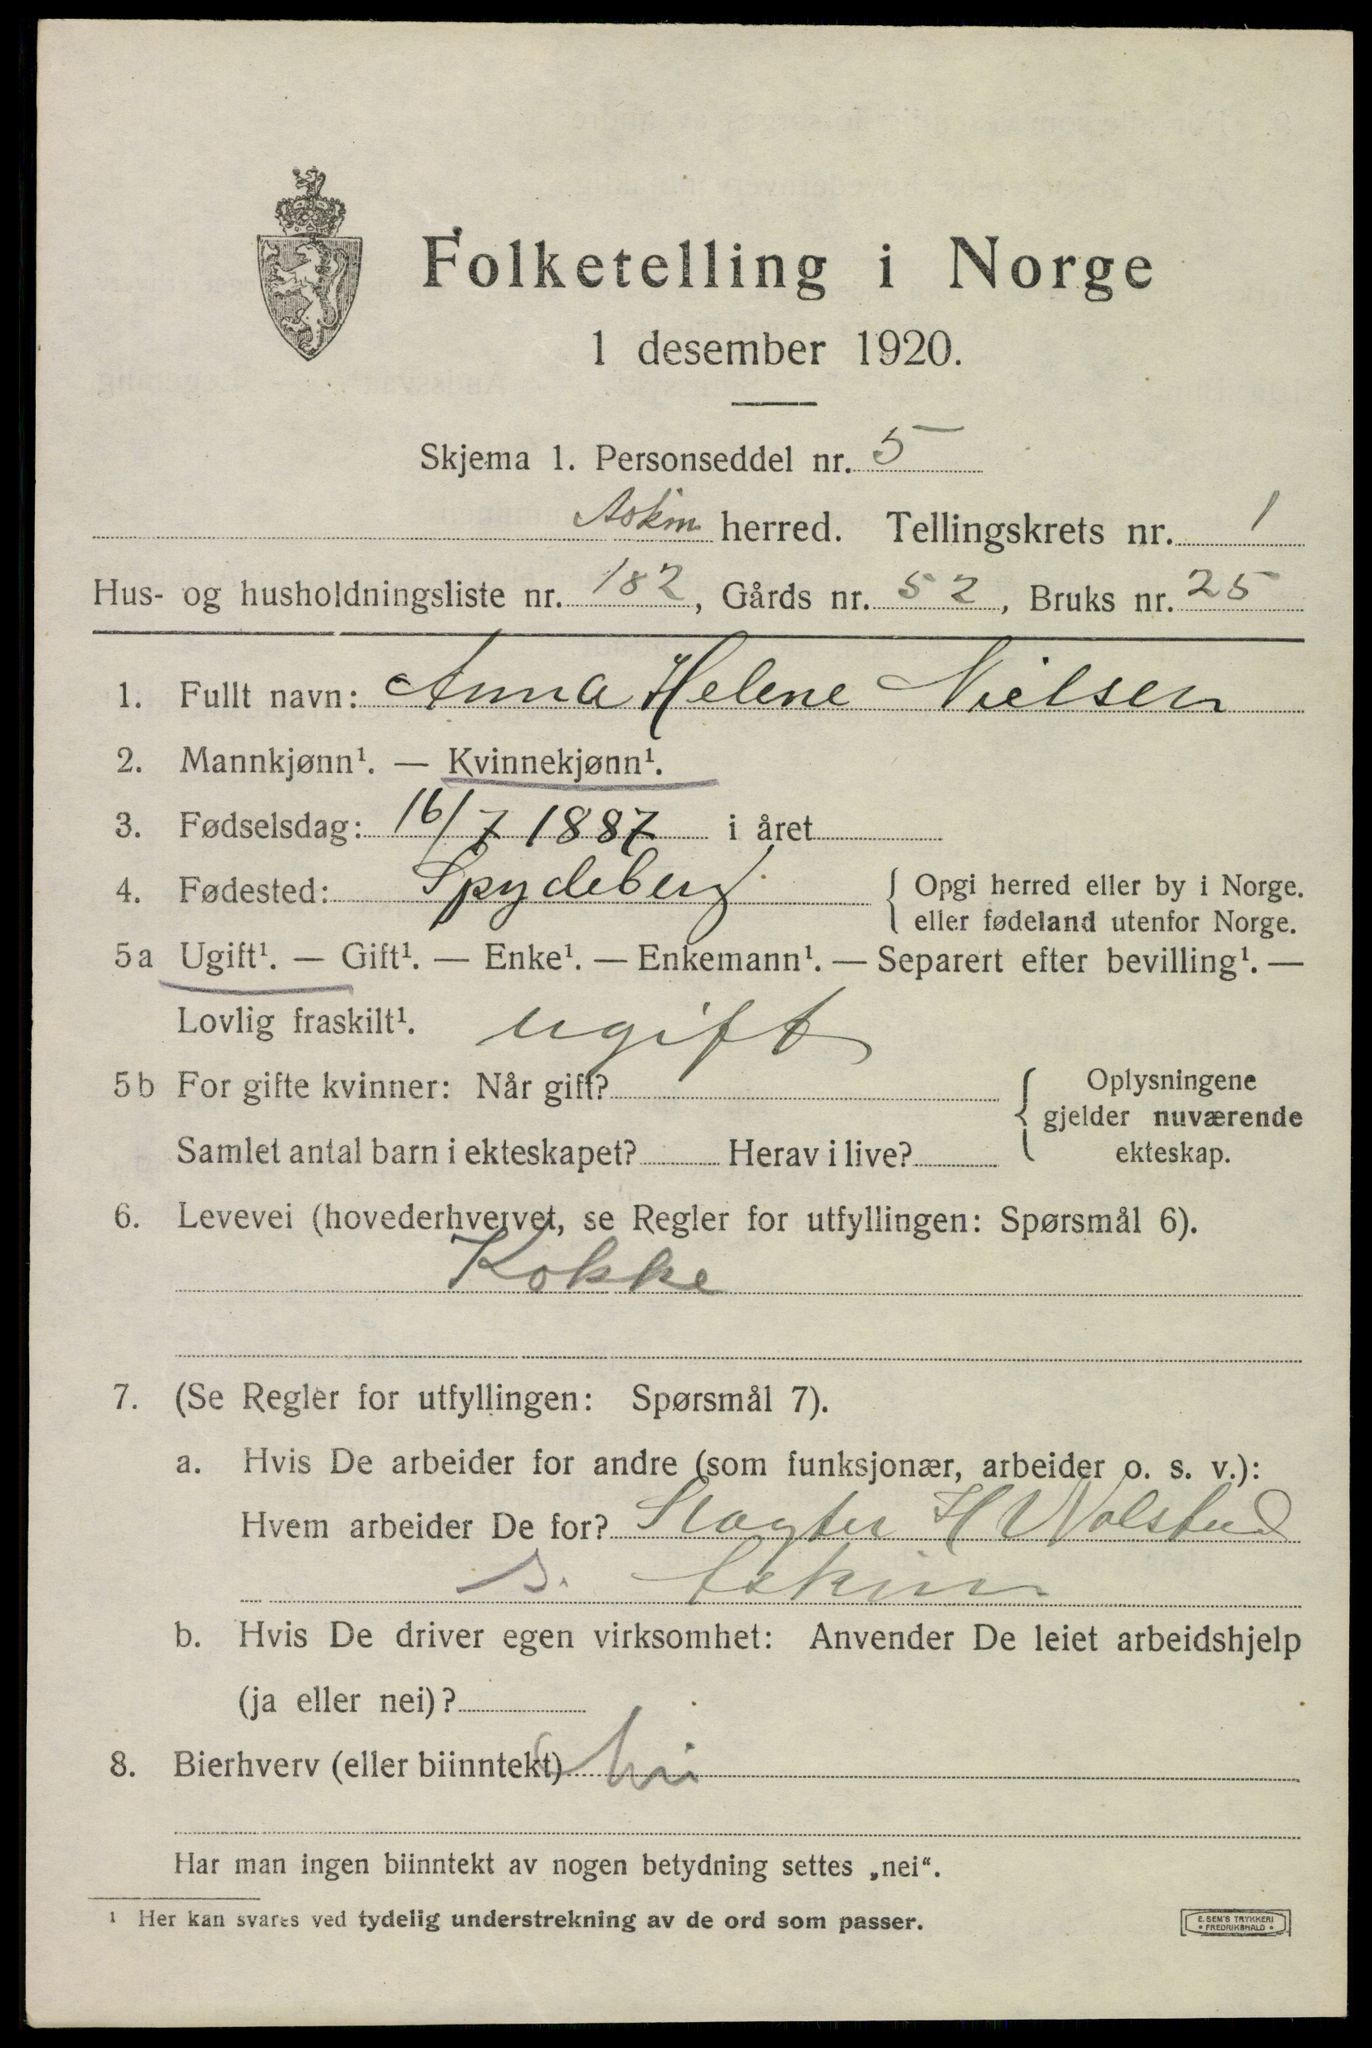 Folketelling i Norge
1 desember 1920.
Skjema 1. Personseddel nr. 5
Askim herred. Tellingskrets nr. 1
Hus- og husholdningsliste nr. 182, Gårds nr. 52, Bruks nr. 25
1. Fullt navn: Anna Helene Nielsen
2. Mannkjønn¹. — Kvinnekjønn¹.
3. Fødselsdag: 16/7 1887 i året
4. Fødested: Spydeberg { Opgi herred eller by i Norge.
eller fødeland utenfor Norge.
5a Ugift¹. — Gift¹. — Enke¹. — Enkemann¹. — Separert efter bevilling¹. —
Lovlig fraskilt¹. ugift
5b For gifte kvinner: Når gift? { Oplysningene
gjelder nuværende
Samlet antal barn i ekteskapet? Herav i live? ekteskap.
6. Levevei (hovederhvervet, se Regler for utfyllingen: Spørsmål 6).
Kokke
7. (Se Regler for utfyllingen: Spørsmål 7).
a. Hvis De arbeider for andre (som funksjonær, arbeider o. s. v.):
Hvem arbeider De for? Slagter H Wolstad
s. Askim
b. Hvis De driver egen virksomhet: Anvender De leiet arbeidshjelp
(ja eller nei)?
8. Bierhverv (eller biinntekt) Nei
Har man ingen biinntekt av nogen betydning settes „nei“.
¹ Her kan svares ved tydelig understrekning av de ord som passer.
E. SEM'S TRYKKERI
• FREDRIKSHALD •